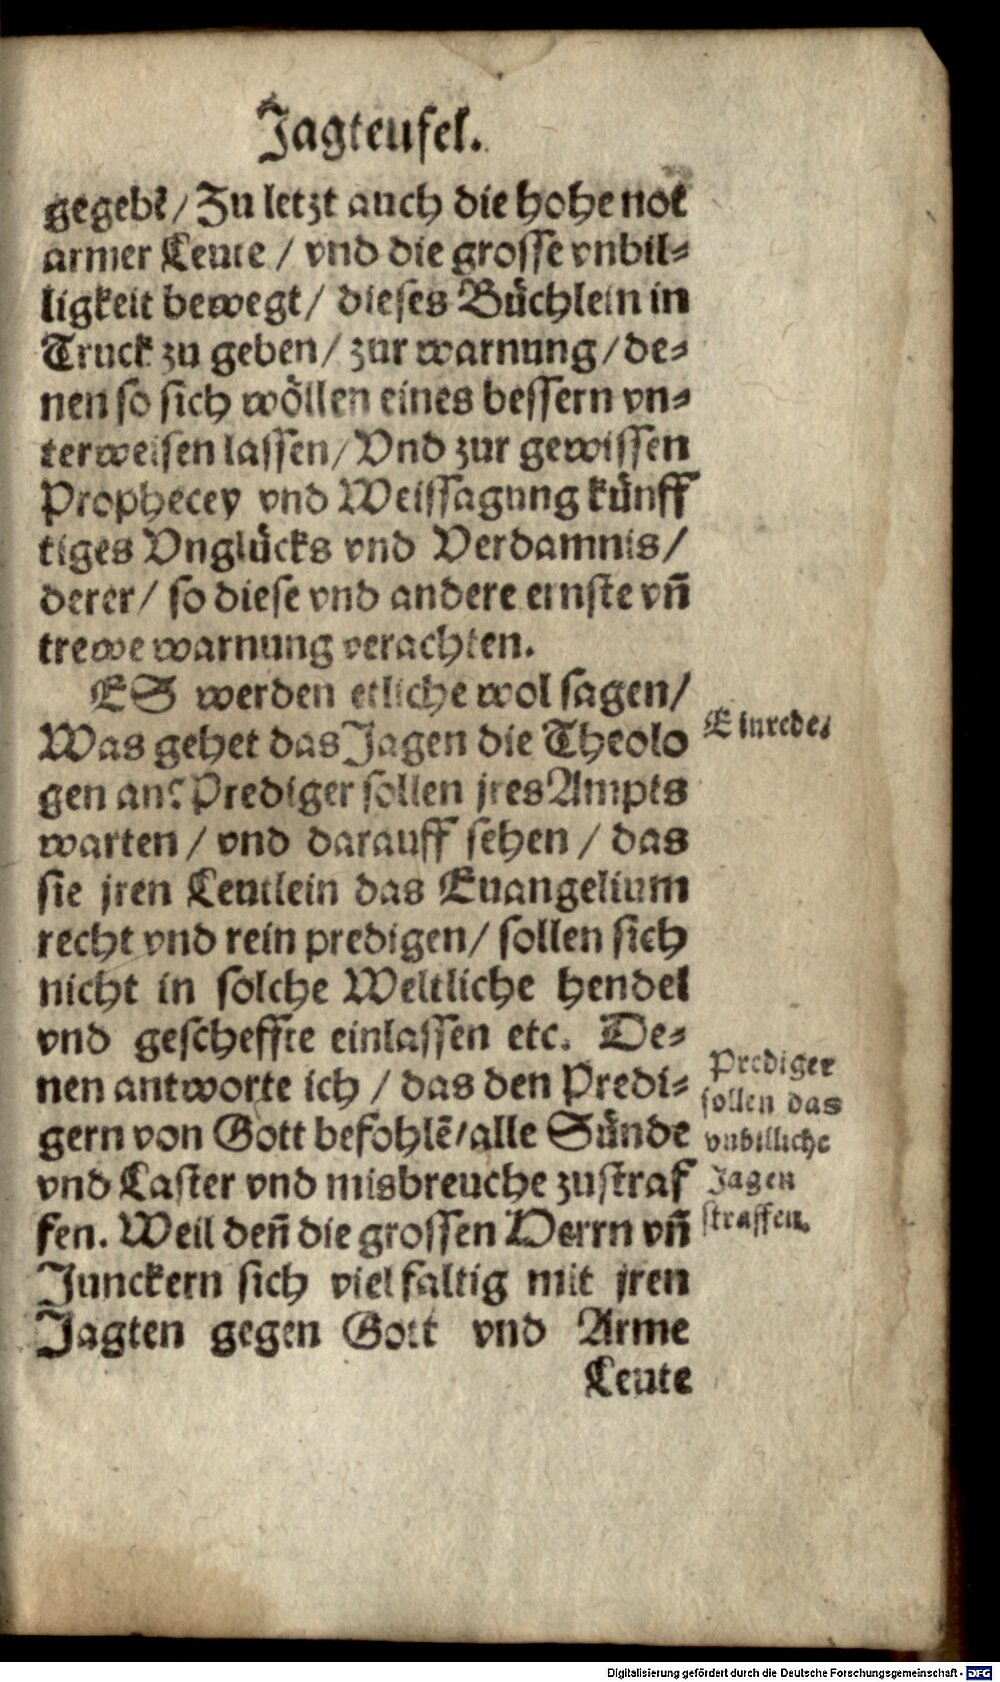 Jagteufel.
gegebẽ / Zu letzt auch die hohe not
armer Leute / vnd die grosse vnbil⸗
ligkeit bewegt / dieses Bůchlein in
Truck zu geben / zur warnung / de⸗
nen so sich wöllen eines bessern vn⸗
terweisen lassen / Vnd zur gewissen
Prophecey vnd Weissagung künff
tiges Vnglücks vnd Verdamnis /
derer / so diese vnd andere ernste vñ
trewe warnung verachten.
ES werden etliche wol sagen /
Einrede.
Was gehet das Jagen die Theolo
gen an? Prediger sollen jres Ampts
warten / vnd darauff sehen / das
sie jren Leutlein das Euangelium
recht vnd rein predigen / sollen sich
nicht in solche Weltliche hendel
vnd gescheffte einlassen etc. De⸗
nen antworte ich / das den Predi⸗
gern von Gott befohlẽ / alle Sünde
vnd Laster vnd misbreuche zustraf
fen. Weil deñ die grossen Herrn vñ
Junckern sich vielfaltig mit jren
Jagten gegen Gott vnd Arme
Leute
Prediger
sollen das
vnbilliche
Jagen
straffen.
Digitalisierung gefördert durch die Deutsche Forschungsgemeinschaft - DFG